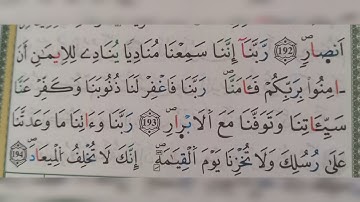 اَنصٰارٍۖ ۝١٩٢ رَّبَّنَآ إِنَّنَا سَمِعْنَا مُنَادِيٗا يُنَادِے لِلِايمَٰنِ أَنَ
اٰمِنُواْ بِرَبِّكُمْ فَـَٔامَنَّاۖ رَبَّنَا فَاغْفِرْ لَنَا ذُنُوبَنَا وَكَفِّرْ عَنَّا
سَيِّـَٔاتِنَا وَتَوَفَّنَا مَعَ اَ۬لَابْرٰارِۖ ۝١٩٣ رَبَّنَا وَءَاتِنَا مَا وَعَدتَّنَا
عَلَىٰ رُسُلِكَ وَلَا تُخْزِنَا يَوْمَ اَ۬لْقِيَٰمَةِۖ إِنَّكَ لَا تُخْلِفُ اُ۬لْمِيعَادَۖ ۝١٩٤